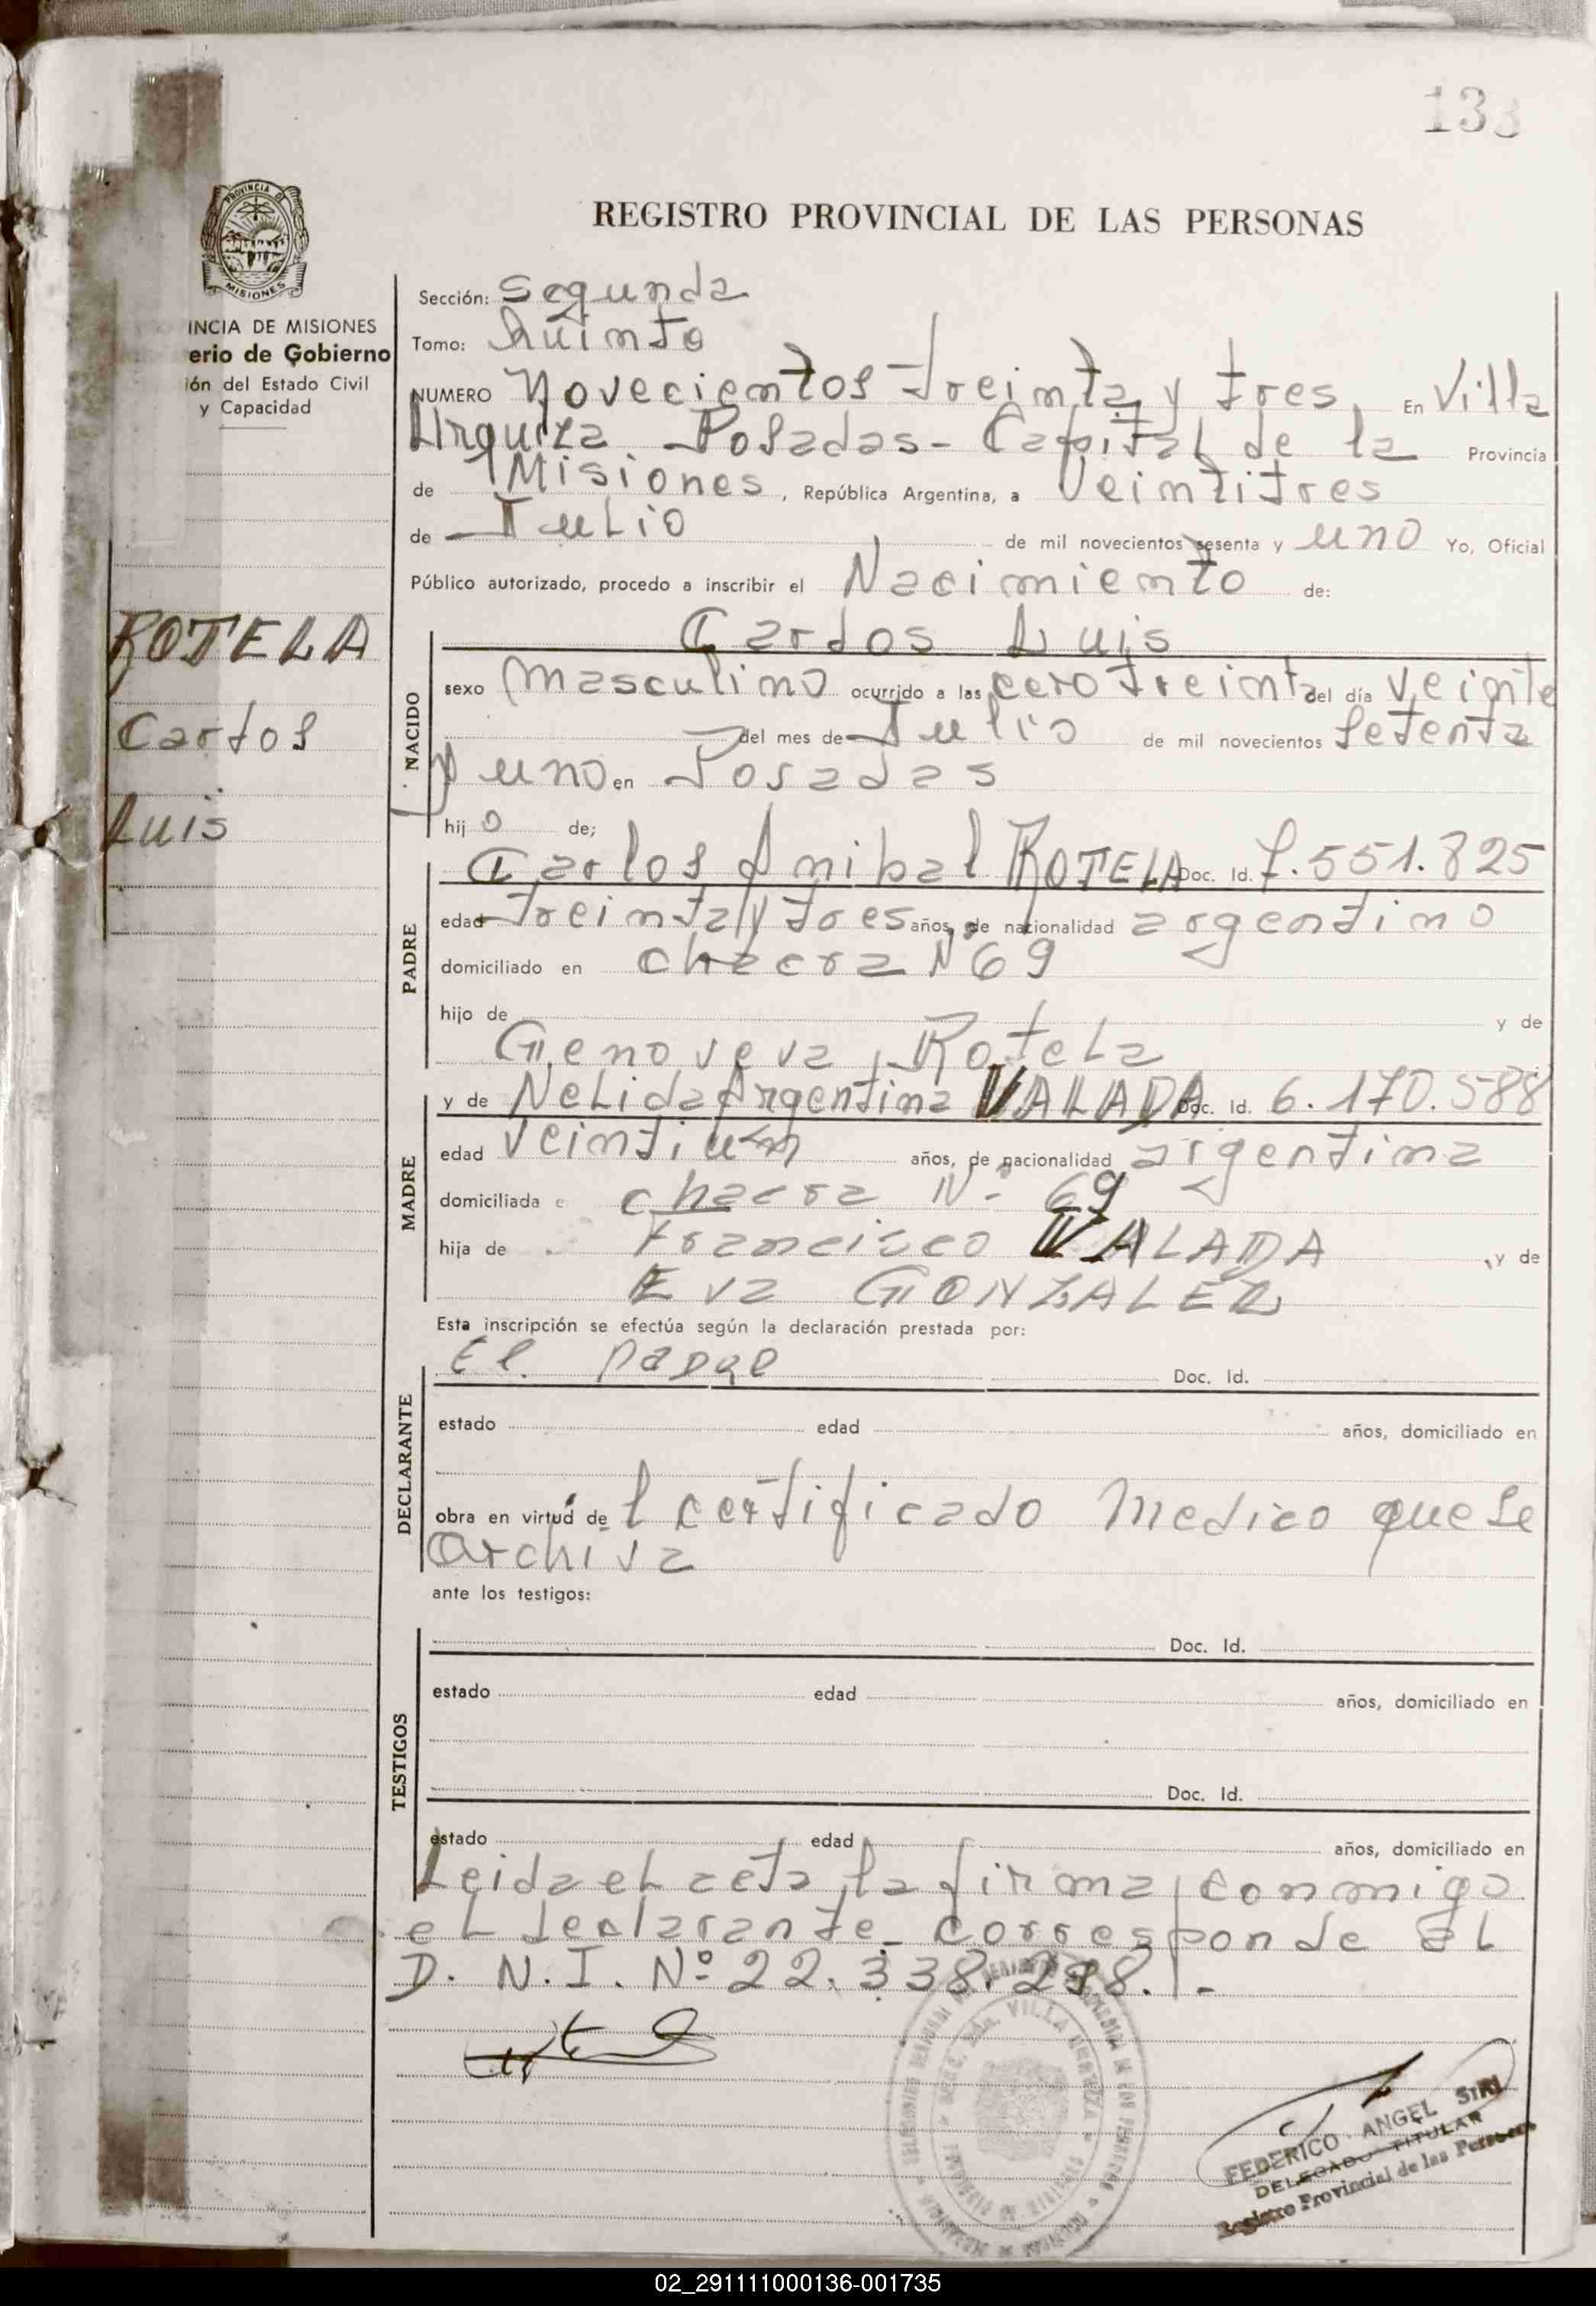 133
REGISTRO PROVINCIAL DE LAS PERSONAS
PROVINCIA DE
MISIONES
INCIA DE MISIONES
erio de Gobierno
ión del Estado Civil
y Capacidad
ROTELA
Carlos
Luis
Sección: Segunda
Tomo: Quinto
NUMERO Novecientos treinta y tres En Villa
Urquiza Posadas - Capital de la Provincia
de Misiones, República Argentina, a Veintitres
de Julio de mil novecientos sesenta y uno Yo, Oficial
Público autorizado, procedo a inscribir el Nacimiento de:
Carlos Luis
NACIDO
sexo masculino ocurrido a las cero treinta del día veinte
del mes de Julio de mil novecientos setenta
y uno en Posadas
hijo de;
PADRE
Carlos Anibal ROTELA Doc. Id. 7.551.825
edad treinta y tres años, de nacionalidad argentino
domiciliado en chacra Nº 69
hijo de y de
Genoveva Rotela
MADRE
y de Nelida Argentina VALADA Doc. Id. 6.170.588
edad veintiun años, de nacionalidad argentina
domiciliada e chacra Nº 69
hija de Francisco VALADA y de
Eva GONZALEZ
Esta inscripción se efectúa según la declaración prestada por:
El padre Doc. Id.
DECLARANTE
estado edad años, domiciliado en
obra en virtud del certificado Medico que se
archiva
ante los testigos:
TESTIGOS
Doc. Id.
estado edad años, domiciliado en
Doc. Id.
estado edad años, domiciliado en
Leida el acta la firma conmigo
el declarante - corresponde al
D. N. I. Nº 22.338.298.-
VILLA URQUIZA
FEDERICO ANGEL SIRI
DELEGADO TITULAR
Registro Provincial de las Personas
02_291111000136-001735